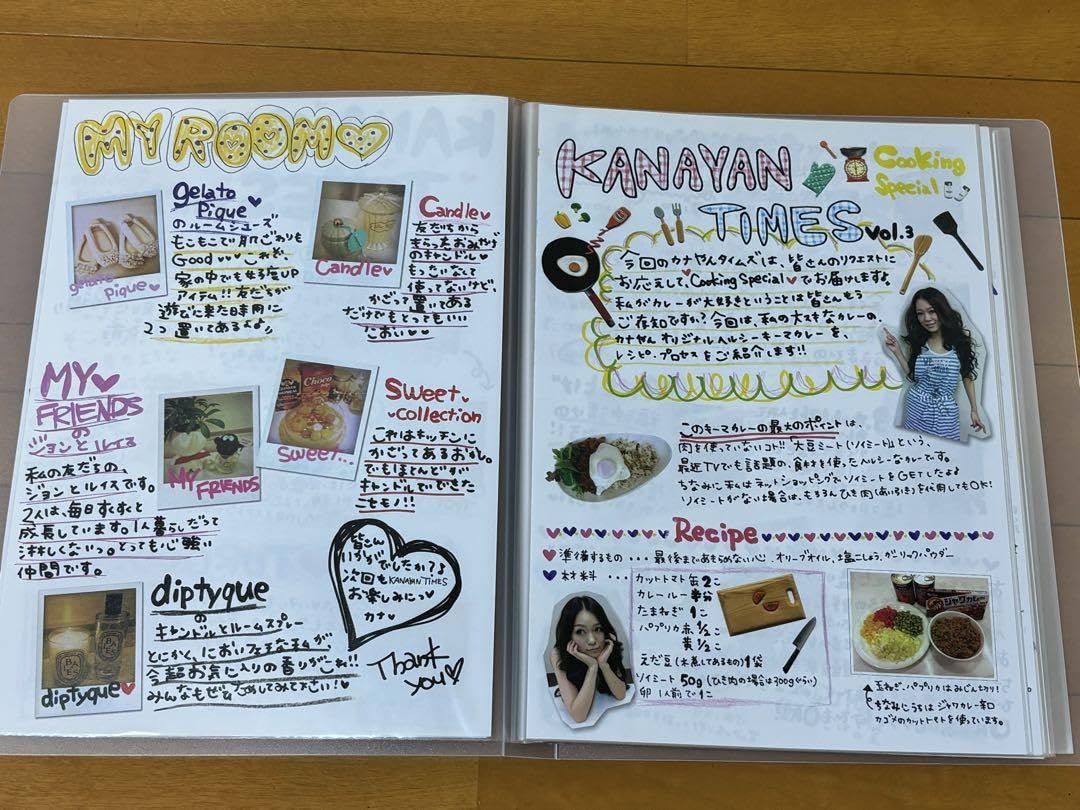 MY ROOM
gelato
Pique
のルームシューズ
もこもこで肌ざわりも
Good これぞ
家の中でも女子度UP
アイテム!! 友だちが
遊びに来た日時用に
2つ 置いてあるよ♪
gelato
pique
Candle
友だちから
もらったおみやげ
のキャンドル♥
もったいなくて
使ってないけど、
かざって置いてある
だけでもとってもいい
におい♥♥
Candle
MY
FRIENDS
の
ジョンとルイス
私の友だちの、
ジョンとルイスです。
2人は、毎日すくすくと
成長しています。1人暮らしだって
淋しくないっ。とっても心強い
仲間です。
MY
FRIENDS
Choco
sweet...
Sweet
Collection
これはキッチンに
かざってあるお菓子。
でもほとんどが
キャンドルでできた
こもの!!
皆さん
いかがでしたか?♪
次回もKANAYAN TIMES
お楽しみにっ♥
カナ♥
Thank
you♡
diptyque
の
キャンドルとルームスプレー
とにかく、においフェチな私が、
今超お気に入りの香りがこれ!!
みんなもぜひためしてみて下さい!♥
BAIES
BAIES
diptyque
KANAYAN
TIMES
Vol.3
Cooking
Special
今回のカナやんタイムズは、皆さんのリクエストに
お応えして、Cooking Special♥でお届けします。
私がカレーが大好きということは皆さんもう
ご存知ですか?今回は、私の大スキなカレーの、
カナやん オリジナルヘルシーキーマカレーを、
レシピ・プロセスをご紹介します!!
このキーマカレーの最大のポイントは、
肉を使っていないコト!! 大豆ミート(ソイミート)という、
最近TVでも話題の、食材を使ったヘルシーなカレーです。
ちなみに私はネットショッピングでソイミートをGETしたよ♪
ソイミートがない場合は、もちろんひき肉(あいびき)を代用してもOK!
Recipe
準備するもの・・・最後まであきらめない心 オリーブオイル、塩こしょう、ガーリックパウダー
材料・・・
カットトマト缶2こ
カレールー半分
たまねぎ 1こ
パプリカ赤 1/2こ
黄 1/2こ
えだ豆(水煮してあるもの)1袋
ソイミート 50g(ひき肉の場合は300gぐらい)
卵 1人前で1こ
ジャワカレー
玉ねぎ、パプリカはみじん切り!
ちなみにうちは ジャワカレー辛口
カゴメのカットトマトを使っています。